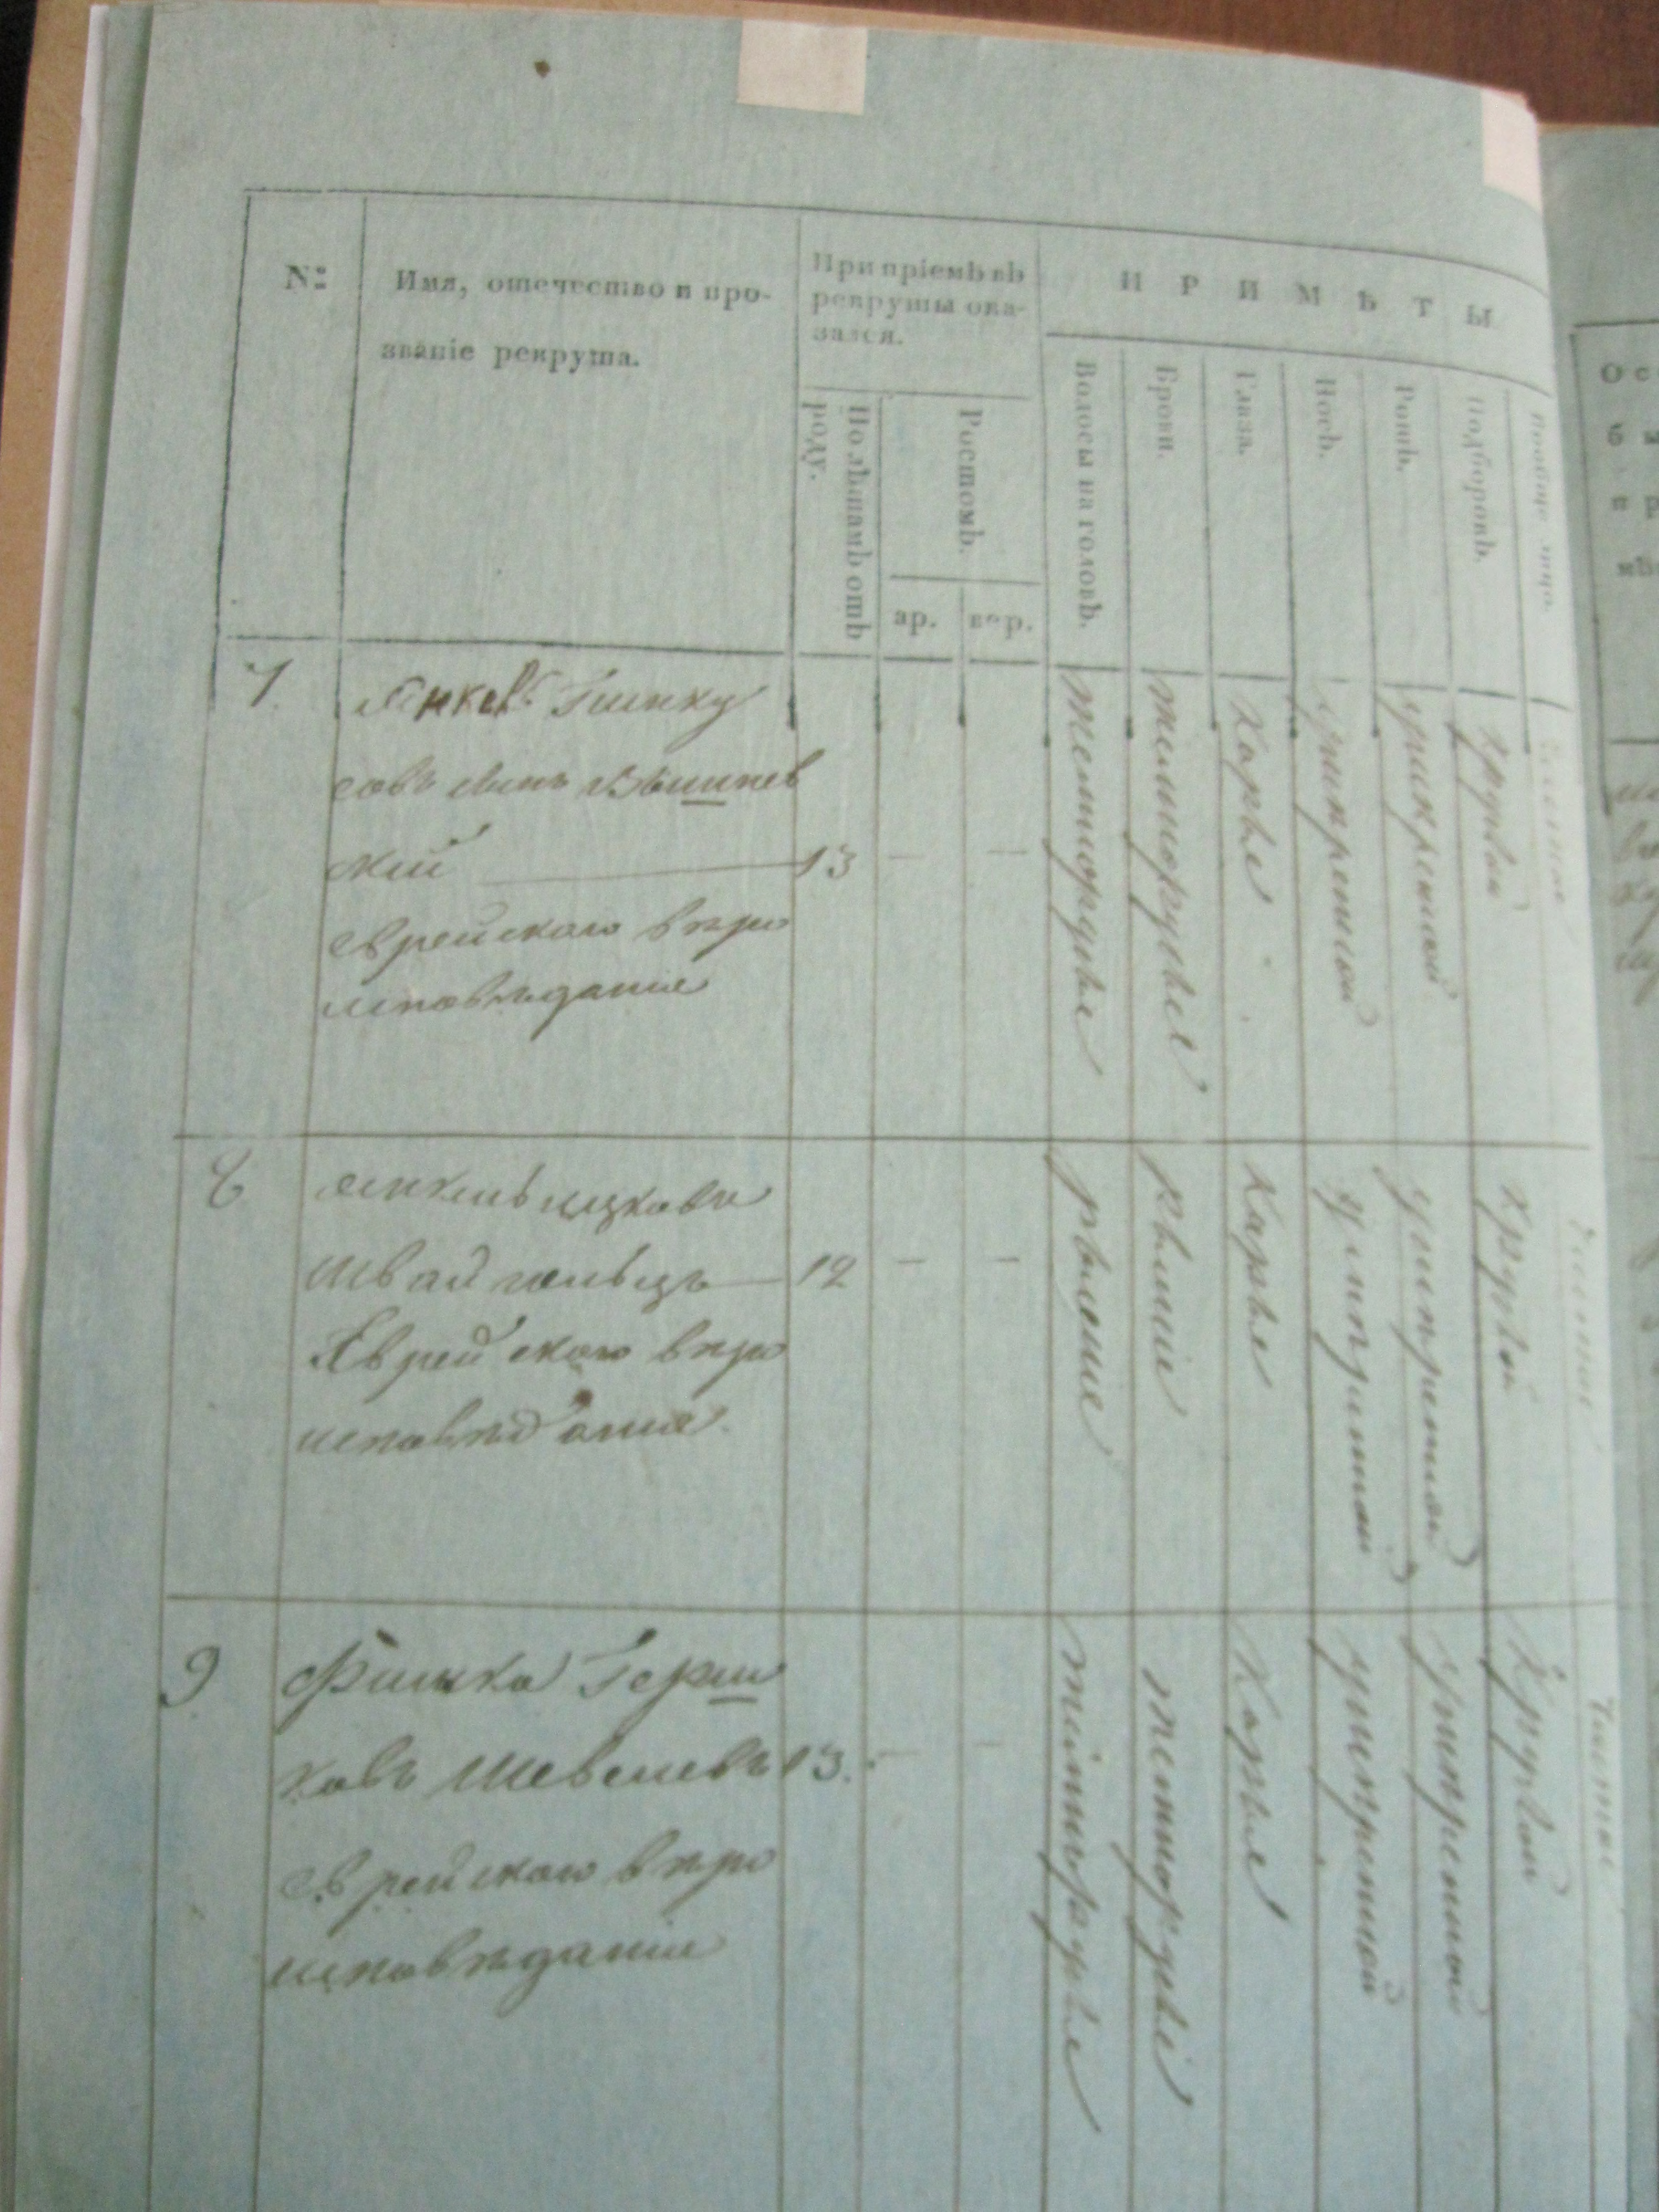 №
Имя, отечество и про-
званіе рекрута.
При пріемѣ въ
рекруты ока-
зался.
По лѣтамъ отъ
роду.
Ростомъ.
ар.
вер.
П Р И М Ѣ Т Ы
Волосы на головѣ.
Брови.
Глаза.
Носъ.
Ротъ.
Подбородъ.
Вообще лицо.
7
совъ сынъ Вышнев
скій
13
— —
Еврейскаго вѣро
исповѣданія
темнорусые
темнорусыя
карые
умѣренной
умѣренной
круглой
8
Янкель Ицковъ
12
— —
Еврейскаго вѣро
исповѣданія
рыжіе
рыжіе
карые
умѣренной
умѣренной
круглой
9
Фишка Герш
ковъ Шевелевъ
13.
— —
еврейскаго вѣро
исповѣданія
темнорусые
темнорусые
карые
умѣренной
умѣренной
круглой
чистое